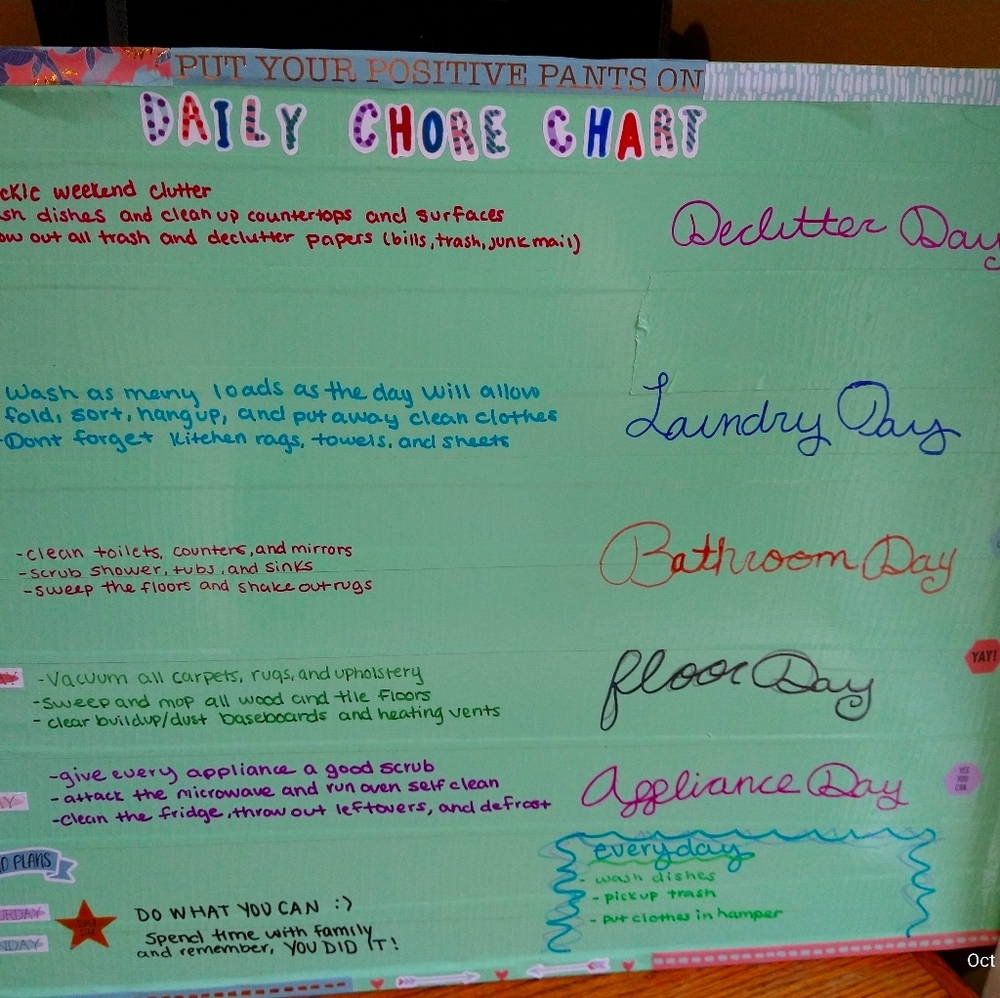 PUT YOUR POSITIVE PANTS ON
DAILY CHORE CHART
ckle weekend clutter
sh dishes and clean up countertops and surfaces
ow out all trash and declutter papers (bills, trash, junk mail)
Declutter Day
Wash as many loads as the day will allow
fold, sort, hang up, and put away clean clothes
Dont forget kitchen rags, towels, and sheets
Laundry Day
-clean toilets, counters, and mirrors
-scrub shower, tubs, and sinks
-sweep the floors and shake out rugs
Bathroom Day
-Vacuum all carpets, rugs, and upholstery
-sweep and mop all wood and tile floors
-clear buildup/dust baseboards and heating vents
floor Day
YAY!
AY
-give every appliance a good scrub
-attack the microwave and run oven self clean
-clean the fridge, throw out leftovers, and defrost
Appliance Day
YES
YOU
CAN
everyday
- wash dishes
- pickup trash
- put clothes in hamper
O PLANS
URDAY
NDAY
DO WHAT YOU CAN :)
Spend time with family
and remember, YOU DID IT!
Oct